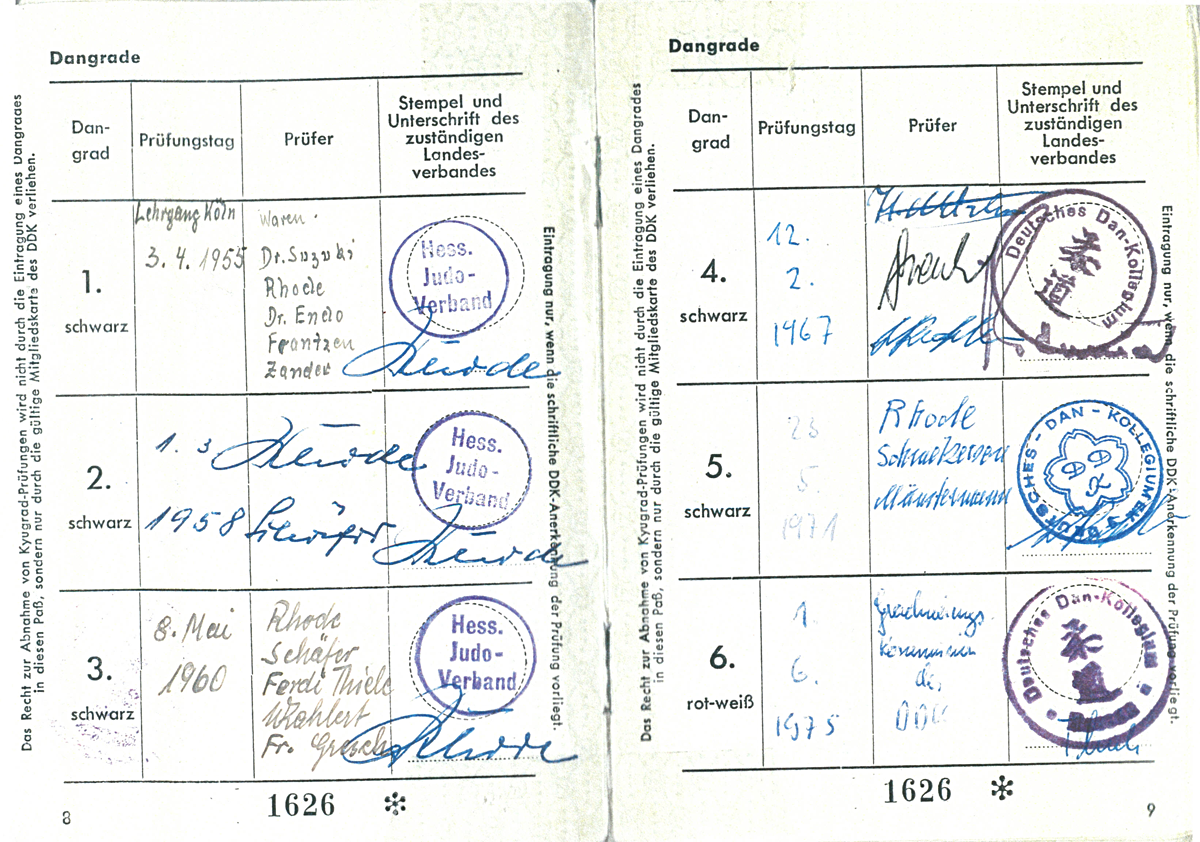 Dangrade
Dan-
grad
Prüfungstag
Prüfer
Stempel und
Unterschrift des
zuständigen
Landes-
verbandes
1.
schwarz
Lehrgang Köln
3. 4. 1955
Waren.
Dr. Suzuki
Rhode
Dr. Endo
Frantzen
Zander
Hess.
Judo-
Verband
2.
schwarz
1. 3
1958
Schäfer
Hess.
Judo-
Verband
3.
schwarz
8. Mai
1960
Rhode
Schäfer
Ferdi Thiele
Wohlert
Fr.
Hess.
Judo-
Verband
Rhode
Das Recht zur Abnahme von Kyugrad-Prüfungen wird nicht durch die Eintragung eines Dangrades
in diesen Paß, sondern nur durch die gültige Mitgliedskarte des DDK verliehen.
Eintragung nur, wenn die schriftliche DDK-Anerkennung der Prüfung vorliegt.
1626 *
8
Dangrade
Dan-
grad
Prüfungstag
Prüfer
Stempel und
Unterschrift des
zuständigen
Landes-
verbandes
4.
schwarz
12.
2.
1967
Deutsches Dan-Kollegium
柔道
5.
schwarz
23
5.
1971
Rhode
DEUTSCHES-DAN-KOLLEGIUM
D D K
6.
rot-weiß
1.
6.
1975
Graduierungs
kommission
des
DDK
Deutsches Dan-Kollegium
Das Recht zur Abnahme von Kyugrad-Prüfungen wird nicht durch die Eintragung eines Dangrades
in diesen Paß, sondern nur durch die gültige Mitgliedskarte des DDK verliehen.
Eintragung nur, wenn die schriftliche DDK-Anerkennung der Prüfung vorliegt.
1626 *
9